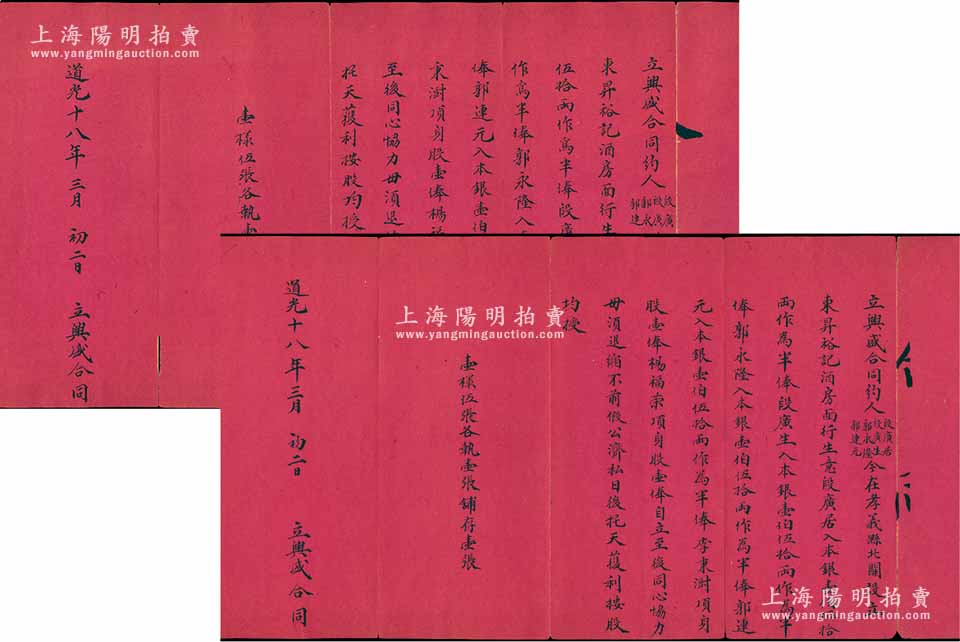 上海陽明拍賣
www.yangmingauction.com
立興盛合同約人
段廣
段廣
郭永
郭連
東昇裕記酒房面行生
伍拾兩作爲半俸段廣
作爲半俸郭永隆入
俸郭連元入本銀壹伯
東澍項身股壹俸楊福
至後同心恊力毋湏退
托天蒦利按股均授
壹樣伍張各執壹
道光十八年三月 初二日 立興盛合同
立興盛合同約人
段廣居
段廣生
郭永隆
郭連元
今在孝義縣北關設立
東昇裕記酒房面行生意段廣居入本銀壹伯伍拾
兩作爲半俸段廣生入本銀壹伯伍拾兩作爲半
俸郭永隆入本銀壹伯伍拾兩作爲半俸郭連
元入本銀壹伯伍拾兩作為半俸李東澍項身
股壹俸楊福荣項身股壹俸自立至後同心恊力
毋湏退縮不前假公濟私日後托天蒦利按股
均授
壹樣伍張各執壹張舖存壹張
道光十八年三月 初二日 立興盛合同
上海陽明拍賣
www.yangmingauction.com
上海陽明拍賣
www.yangmingauction.com